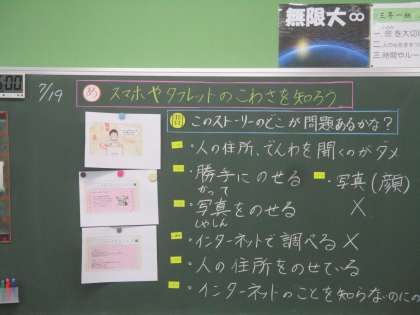 無限大∞
三年一組
一.命を大切に
三.時間やルー
:00
7/19
め スマホやタブレットのこわさを知ろう
問 このストーリーのどこが問題あるかな?
・人の住所、でんわを聞くのがダメ
・勝手にのせる ・写真(顔)
かって
・写真をのせる ×
しゃしん
・インターネットで調べる ×
・人の住所をのせている
・インターネットのことを知らないのにの